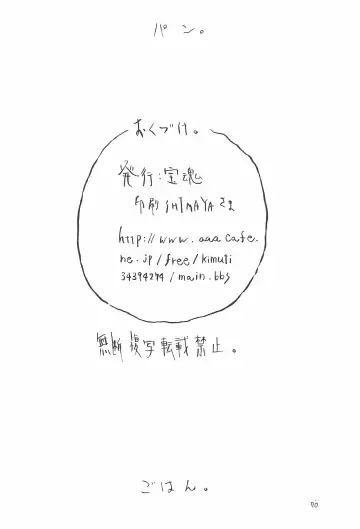 パン。
おくづけ。
発行:宝魂
印刷 SHIMAYAさま
http://www.aaacafe.
ne.jp/free/kimuti
34394294/main.bbs
無断複写転載禁止。
ごはん。